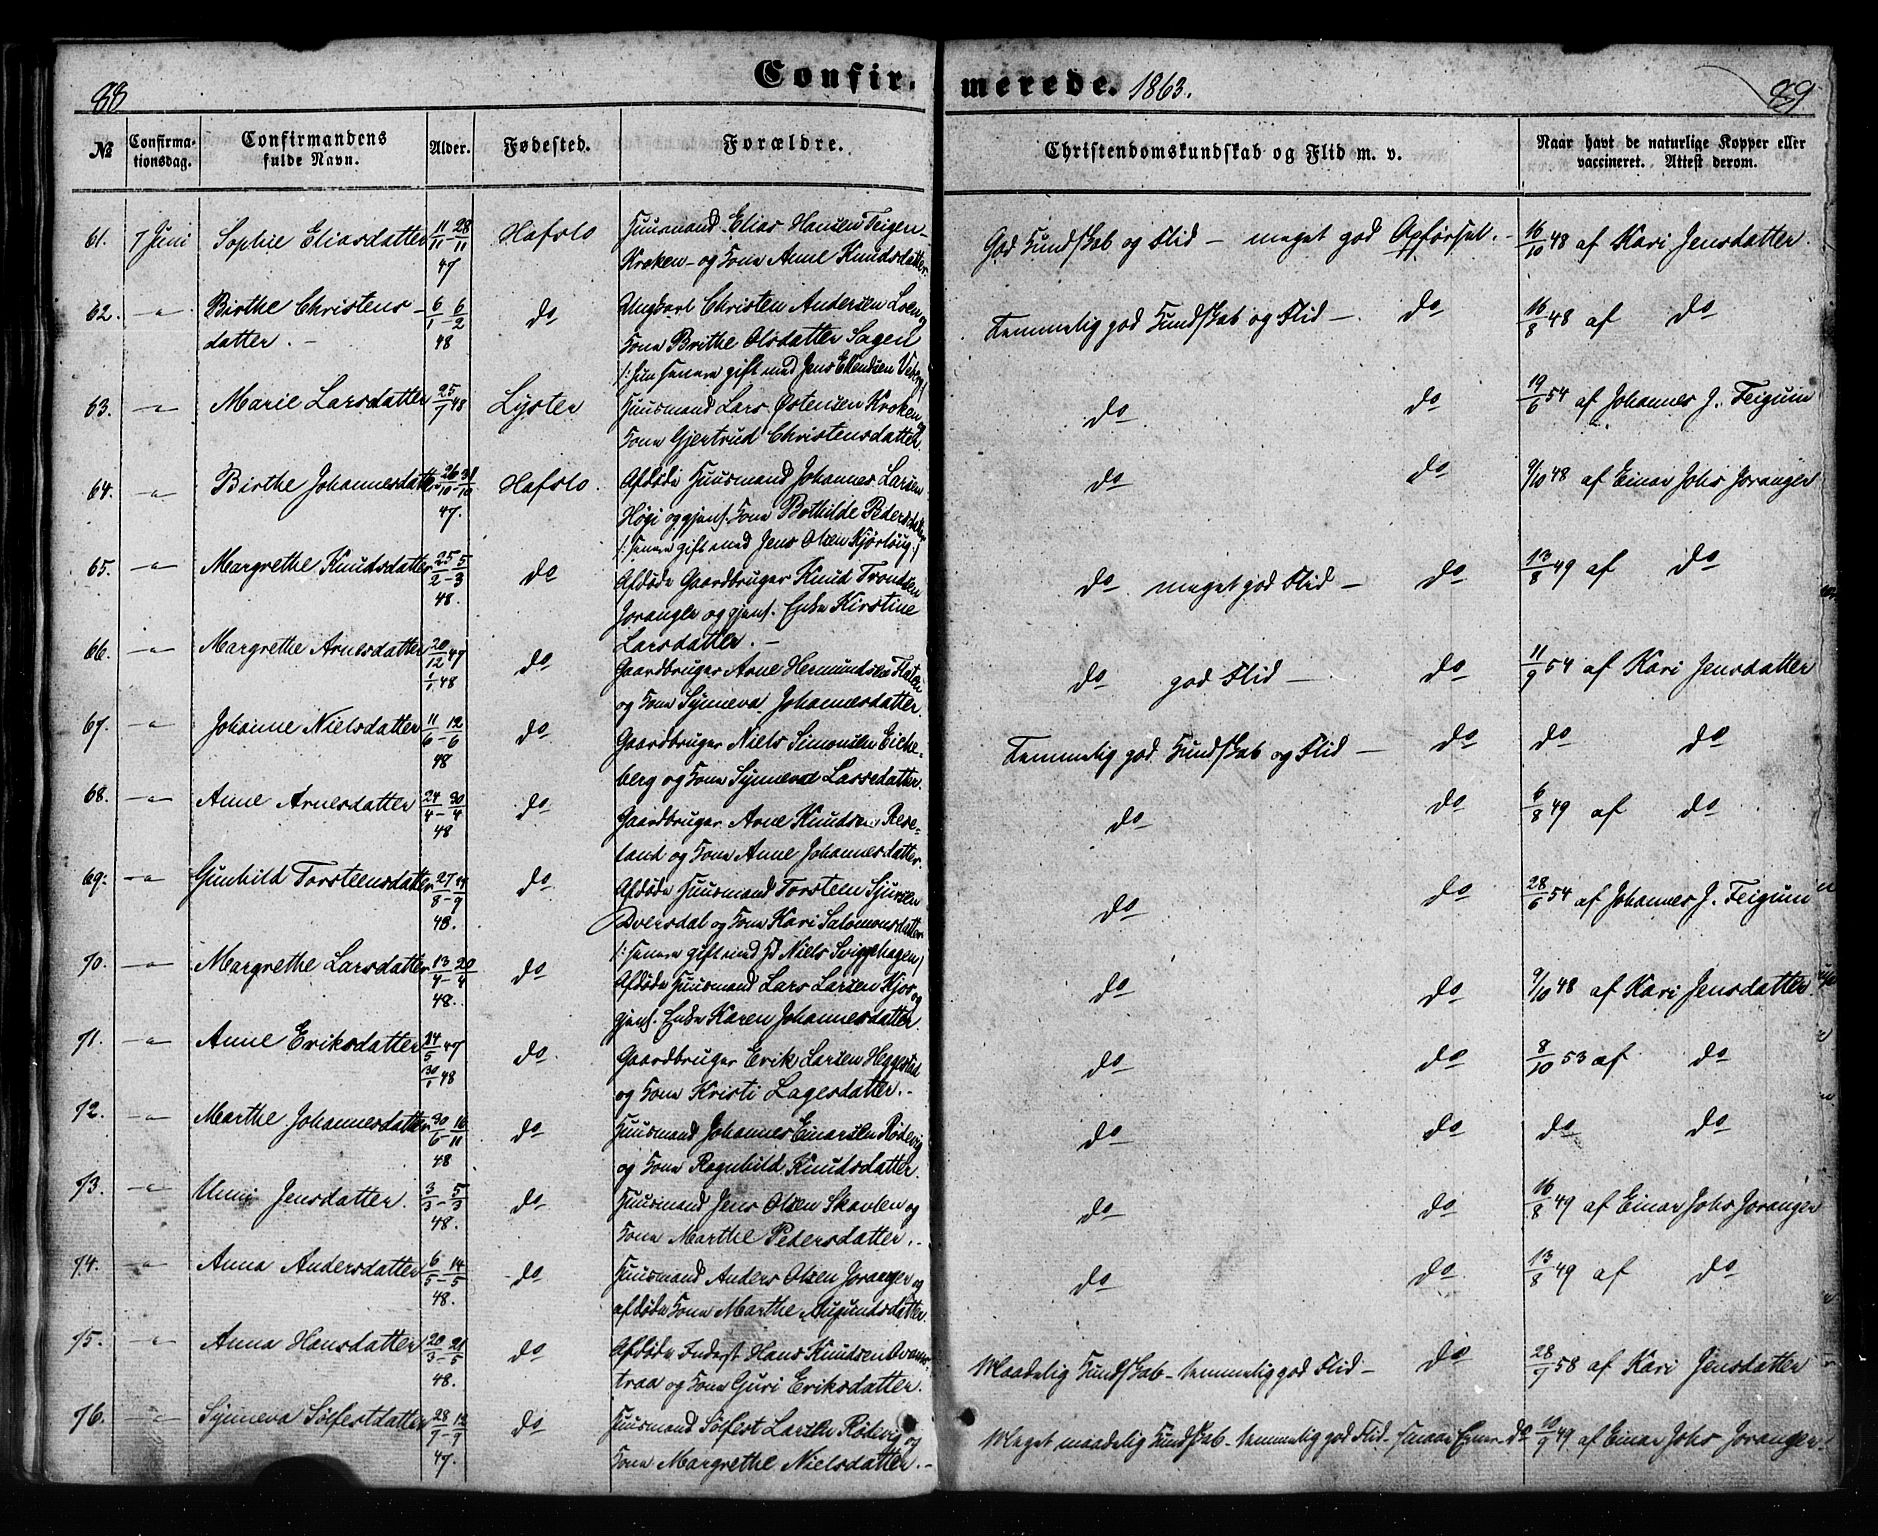 88
Confir-
merede. 1863.
89
No
Confirma-
tionsdag.
Confirmandens
fulde Navn.
Alder.
Fødested.
Forældre.
Christendomskundskab og Flid m. v.
Naar havt de naturlige Kopper eller
vaccineret. Attest derom.
61. 7 Juni Sophie Eliasdatter 11/11-28/11 Hafslo Huusmand Elias Hansen Teigen- God Kundskab og Flid - meget god Opførsel. - 16/10 48 af Kari Jensdatter.
47 Kroken - og Kone Anne Knudsdatter.
62. -"- Birthe Christens- 6/1-6/2 do Ungkarl Christen Andersen Loen og Temmelig god Kundskab og Flid - do 16/8 48 af do
datter. - 48 Kone Brithe Olsdatter Sagen
/: hun senere gift med Jens
63. -"- Marie Larsdatter 25/7 48 Lyster Huusmand Lars Østensen Kroken og do do 19/6 54 af Johannes J. Feigum
Kone Gjertrud Christensdatter.
64. -"- Birthe Johannesdatter 26/10-31/10 Hafslo. Afdøde Huusmand Johannes Larsen do do 9/10 48 af Einar Johs Joranger
47. Høgi og gjenl. Kone Bothilde Pedersdatter
/: senere gift med Jens Olsen Kjørlaug :/
65. -"- Margrethe Knudsdatter 25/2-5/3 do Afdøde Gaardbruger Knud Trondsen do meget god Flid - do 13/8 49 af do
48. Joranger og gjenl. Enke Kirstine
Larsdatter. -
66. -"- Margrethe Arnesdatter 20/12 47 do Gaardbruger Arne Hermundsen Flaten do god Flid - do 11/9 54 af Kari Jensdatter
1/1 48 og Kone Synneva Johannesdatter.
67. -"- Johanne Nielsdatter 11/6-12/6 do Gaardbruger Niels Simonsen Eiche- Temmelig god Kundskab og Flid - do do do
48 berg og Kone Synneva Lassedatter.
68. -"- Anne Arnesdatter 24/4-30/4 do Gaardbruger Arne Knudsen Rese- do do 6/8 49 af do
48 land og Kone Anne Johannesdatter.
69. -"- Gunhild Torsteensdatter 27/8- do Afdøde Huusmand Torsten Sjursen do do 28/6 54 af Johannes J. Feigum
48. Dversdal og Kone Kari Salomonsdatter
/: senere gift med Niels Svippehagen /
70. -"- Margrethe Larsdatter 13/4-20/4 do Afdøde Huusmand Lars Larsen Kjos og do do 9/10 48 af Kari Jensdatter.
48. gjenl. Enke Karen Johannesdatter.
71. -"- Anne Eriksdatter 24/5 47 do Gaardbruger Erik Larsen Heggestad do do 8/10 53 af do
30/1 48 og Kone Kristi Lagesdatter. -
72. -"- Marthe Johannesdatter 30/6-16/11 do Huusmand Johannes Einarsen Rødevig do do do do
48 og Kone Ragnhild Knudsdatter.
73. -"- Unni Jensdatter. 3/3-5/3 do Huusmand Jens Olsen Skavlen og do do 16/8 49 af Einar Johs Joranger
48. Kone Marthe Pedersdatter. -
74. -"- Anna Andersdatter 6/5-14/5 do Huusmand Anders Olsen Joranger og do do 13/8 49 af do
48. afdøde Kone Marthe Augundsdatter.
75. -"- Anna Hansdatter 20/3-21/5 do Afdøde Inderst Hans Knudsen Maadelig Kundskab - temmelig god Flid - do 28/7 58 af Kari Jensdatter
48. traa og Kone Guri Eriksdatter.
76. -"- Synneva Solfestdatter 28/7-12/9 do Huusmand Solfest Larsen Rødevig og Meget maadelig Kundskab - temmelig god Flid - smaae Evner - do 10/9 49 af Einar Johs Joranger.
47. Kone Margrethe Nielsdatter. -